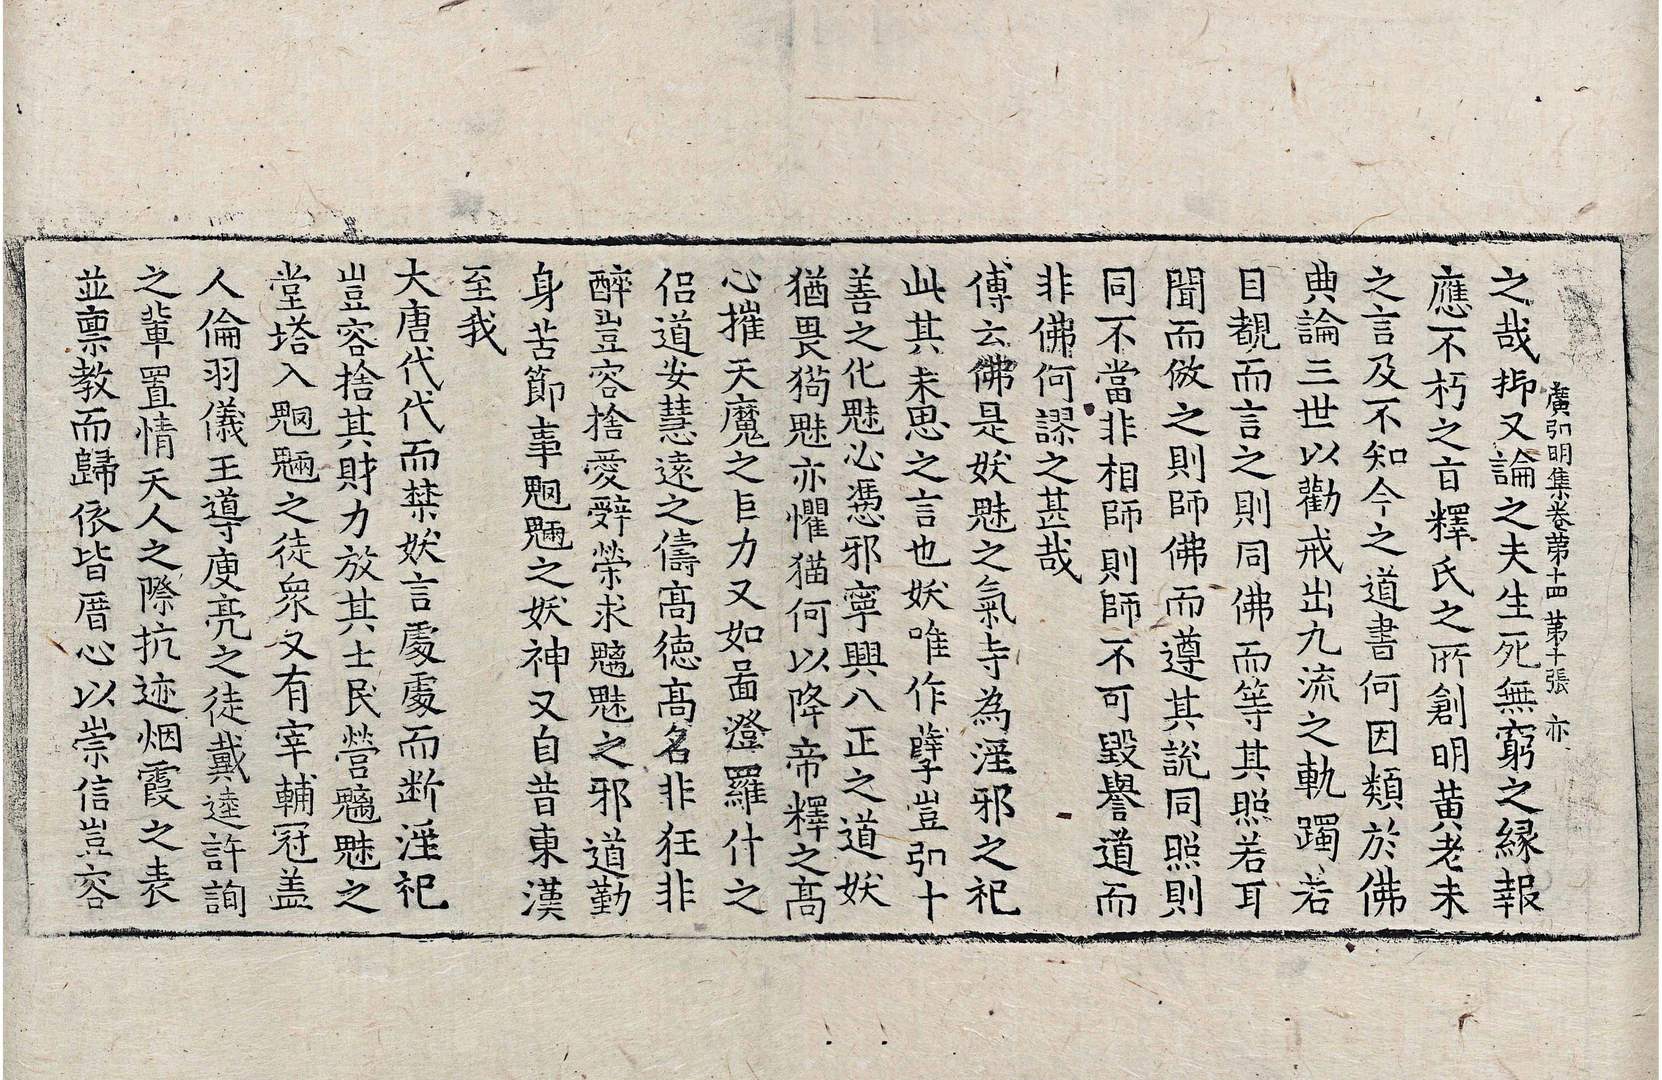 廣弘明集卷第十四 第十張 亦
之哉抑又論之夫生死無窮之緣報
應不朽之旨釋氏之所創明黃老未
之言及不知今之道書何因類於佛
典論三世以勸戒出九流之軌躅若
目覩而言之則同佛而等其照若耳
聞而倣之則師佛而遵其說同照則
同不當非相師則師不可毀譽道而
非佛何謬之甚哉
傅云佛是妖魅之氣寺為淫邪之祀
此其未思之言也妖唯作孽豈弘十
善之化魅必憑邪寧興八正之道妖
猶畏狗魅亦懼猫何以降帝釋之高
心摧天魔之巨力又如啚澄羅什之
侶道安慧遠之儔高德高名非狂非
醉豈容捨愛辭榮求魑魅之邪道勤
身苦節事魍魎之妖神又自昔東漢
至我
大唐代代而禁妖言處處而断淫祀
豈容捨其財力放其士民營魑魅之
堂塔入魍魎之徒衆又有宰輔冠盖
人倫羽儀王導庾亮之徒戴逵許詢
之輩置情天人之際抗迹烟霞之表
並禀教而歸依皆厝心以崇信豈容